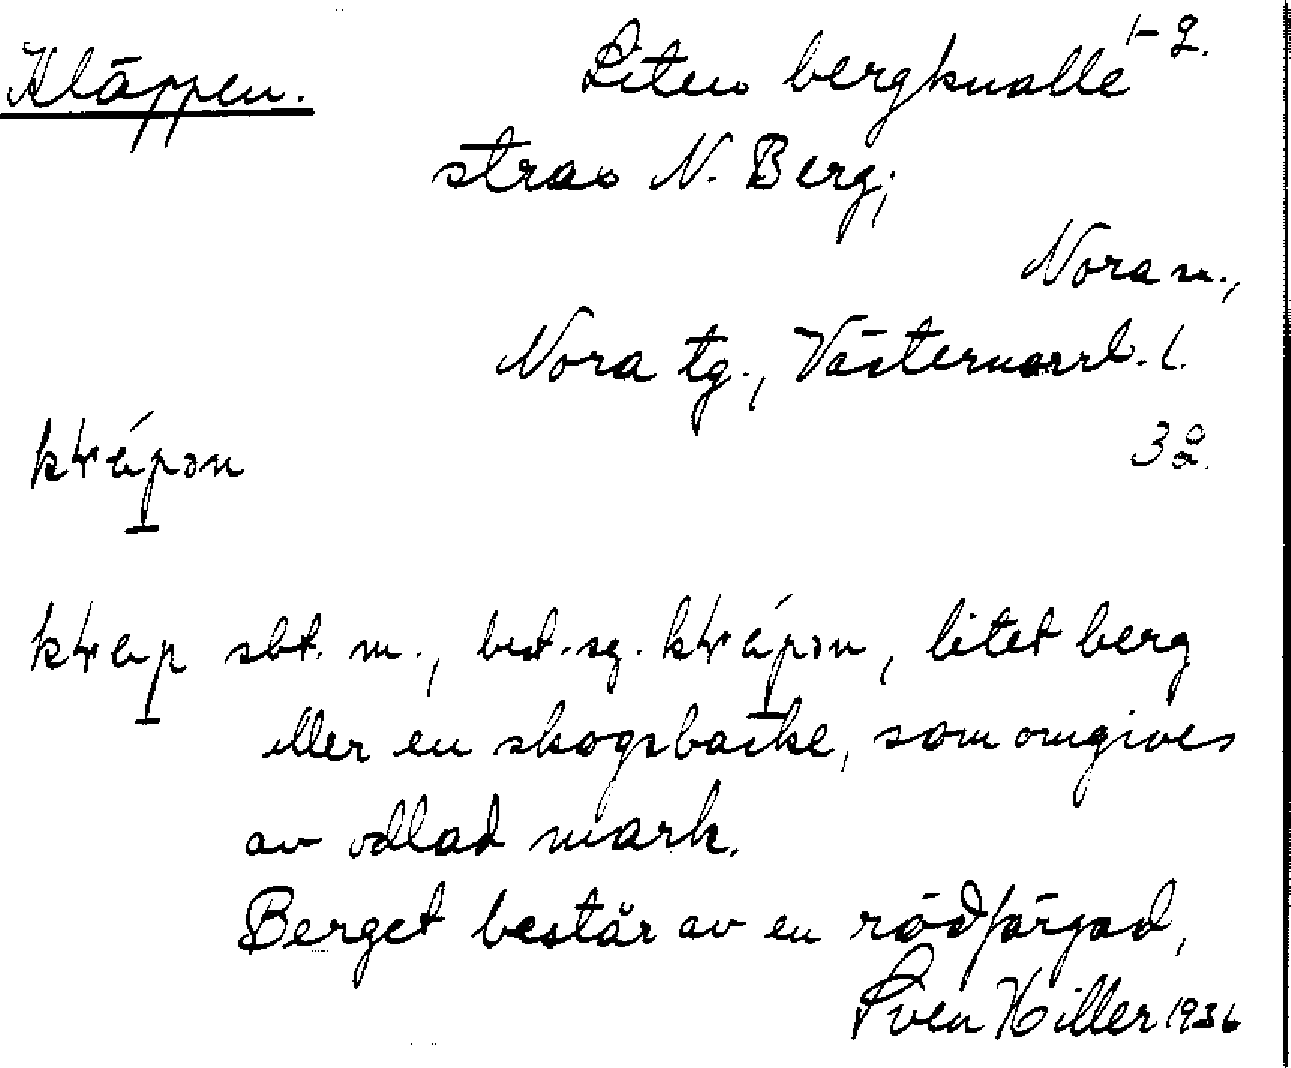 Kläppen. Liten bergknalle 1-2.
strax N. Berg;
Nora sn.,
Nora tg., Västernorrl. l.
3 2.
sbt. m., best. sg. , litet berg
eller en skogsbacke, som omgives
av odlad mark.
Berget består av en rödfärgad,
Sven Hiller 1936